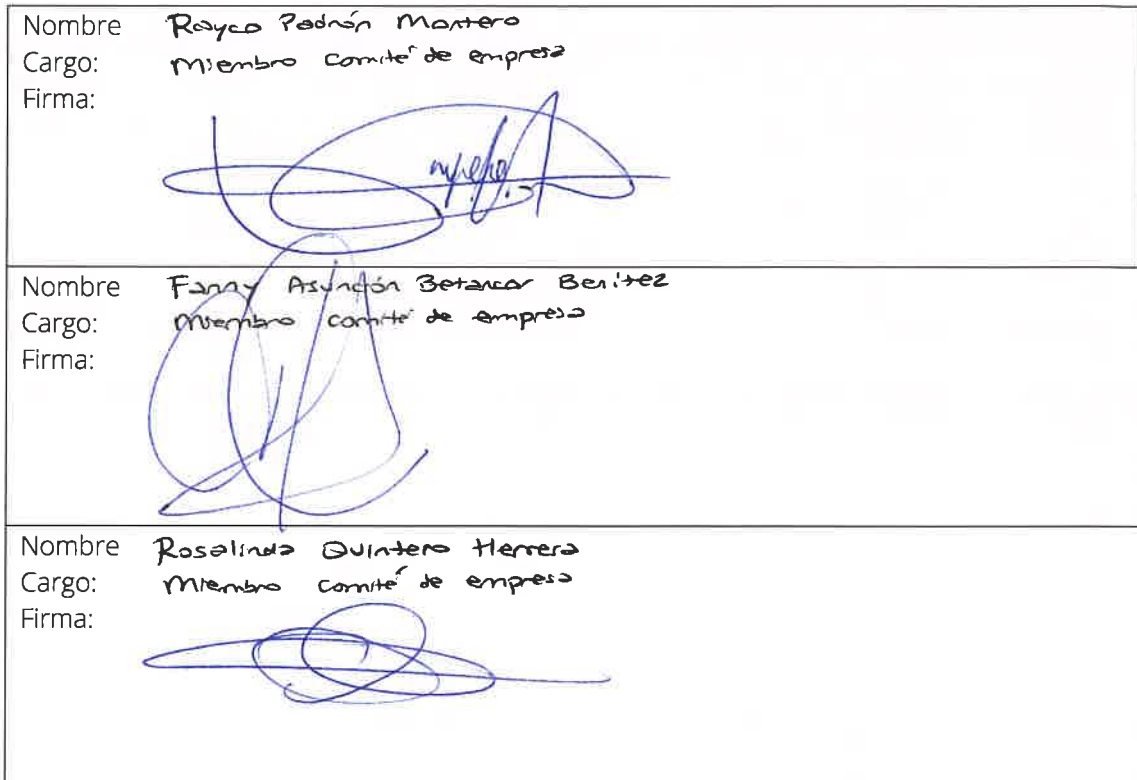 Nombre Rayco Padrón Montero
Cargo: Miembro comité de empresa
Firma:
Nombre Fanny Asunción Betancor Benítez
Cargo: Miembro comité de empresa
Firma:
Nombre Rosalinda Quintero Herrera
Cargo: Miembro comité de empresa
Firma: